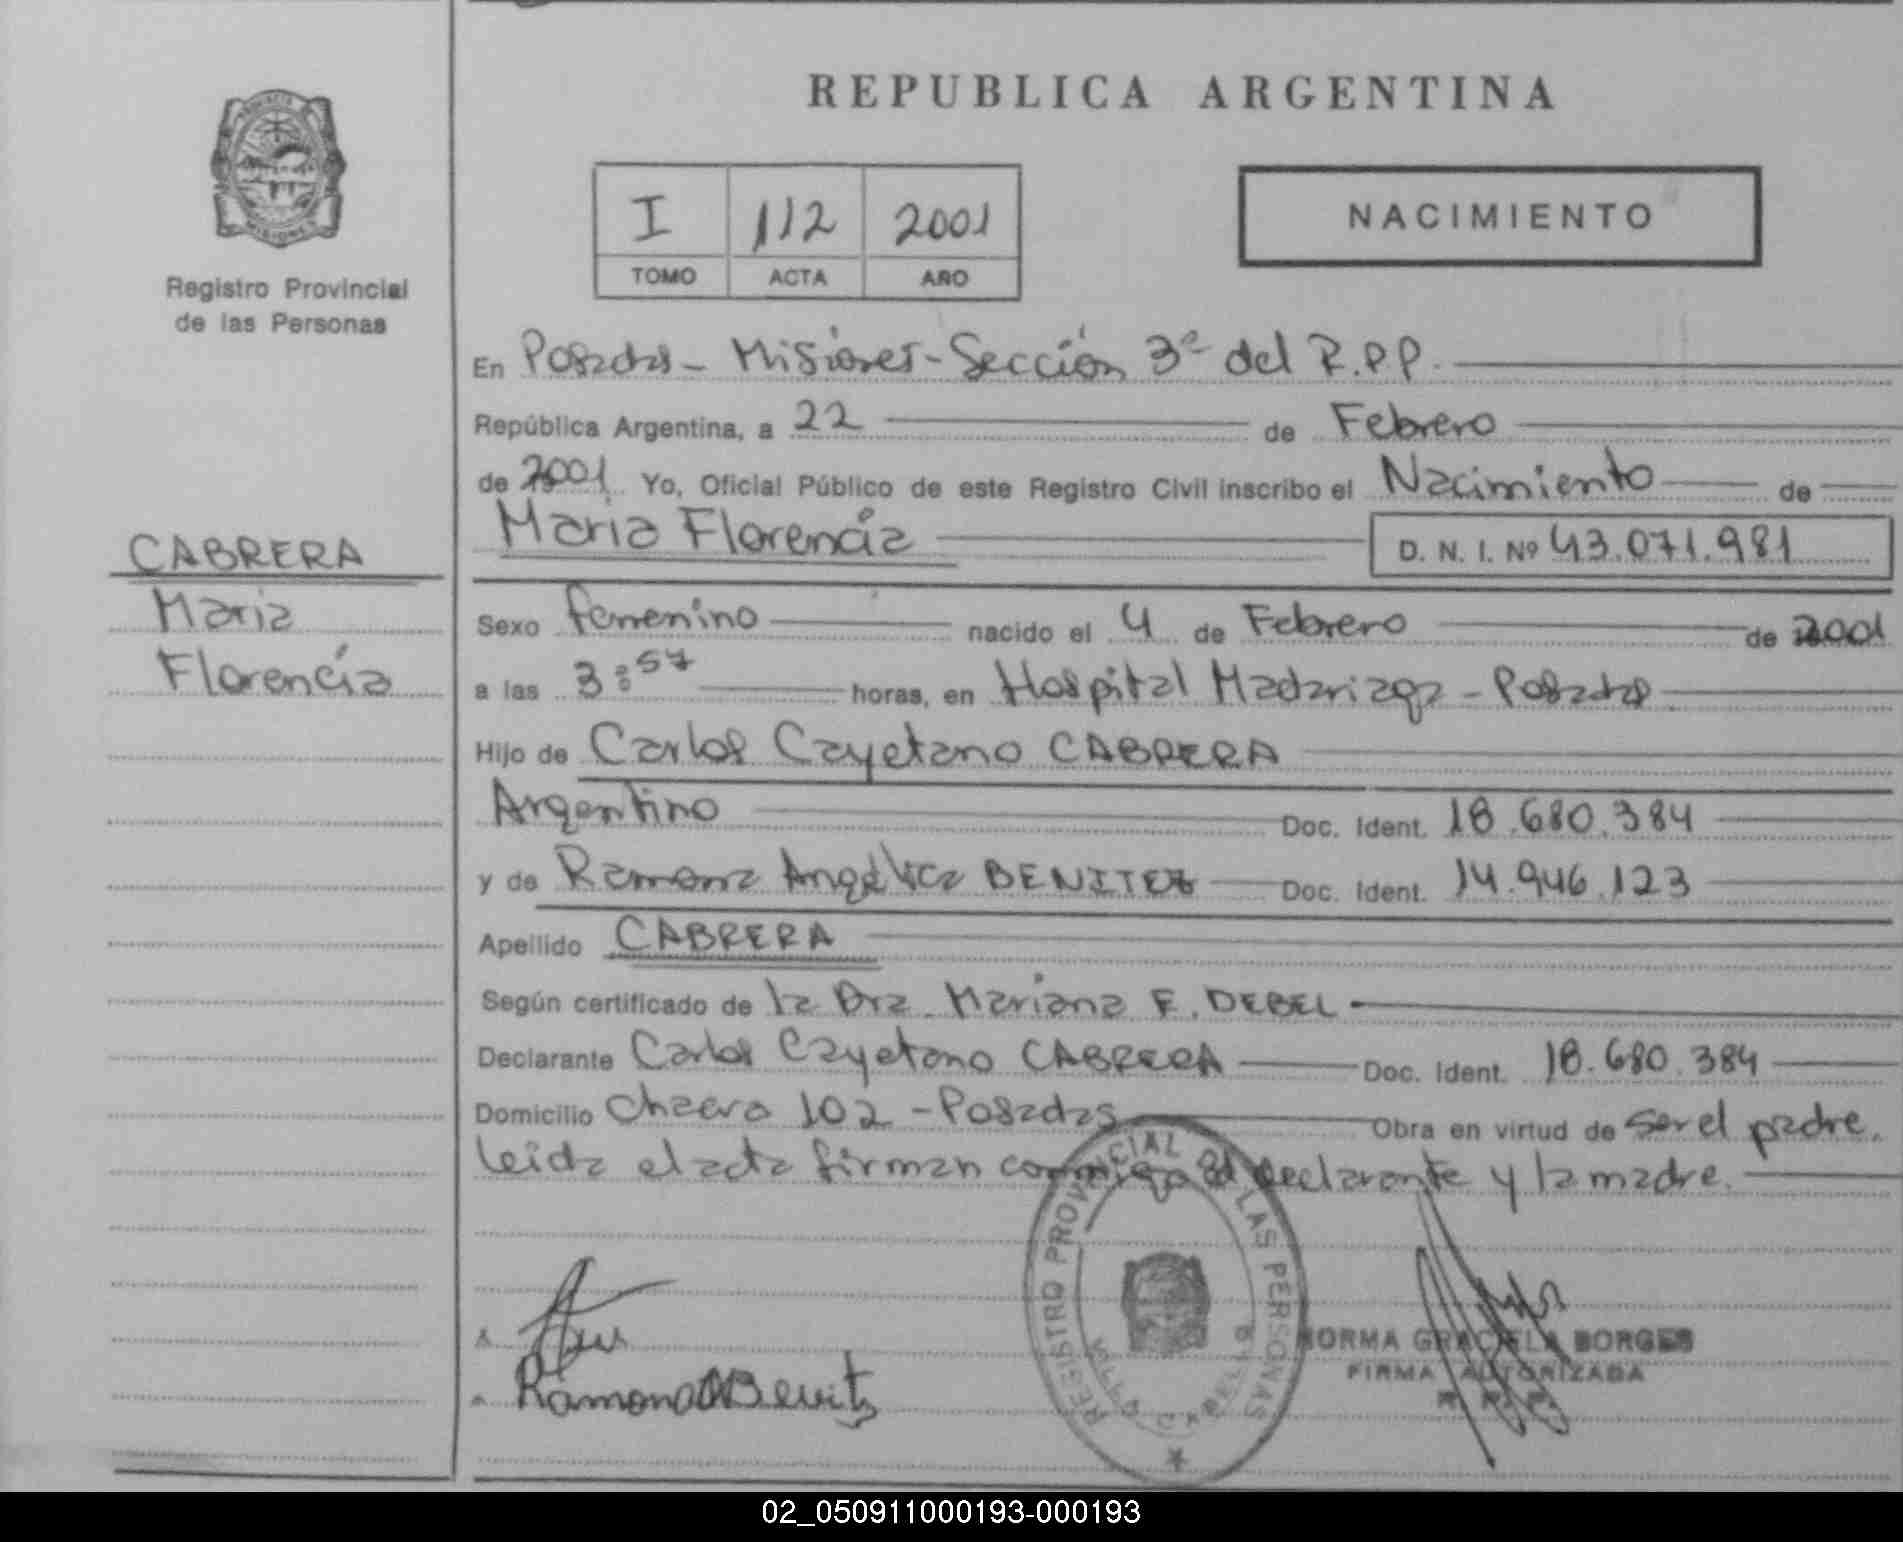 REPUBLICA ARGENTINA
PROVINCIA
MISIONES
Registro Provincial
de las Personas
I 112 2001
TOMO ACTA AÑO
NACIMIENTO
En Posadas - Misiones - Sección 3ª del R.P.P.
República Argentina, a 22 de Febrero
de 2001 Yo, Oficial Público de este Registro Civil inscribo el Nacimiento de
Maria Florencia D. N. I. Nº 43.071.981
CABRERA
Maria
Florencia
Sexo femenino nacido el 4 de Febrero de 2001
a las 3:57 horas, en Hospital Madariaga - Posadas
Hijo de Carlos Cayetano CABRERA
Argentino Doc. Ident. 18.680.384
y de Ramona Angélica BENITEZ Doc. Ident. 14.946.123
Apellido CABRERA
Según certificado de la Dra. Mariana E. DEBEL
Declarante Carlos Cayetano CABRERA Doc. Ident. 18.680.384
Domicilio 102 - Posadas Obra en virtud de ser el padre.
Leida el acta firman conmigo el declarante y la madre.
REGISTRO PROVINCIAL DE LAS PERSONAS
VILLA CABELLO
Ramona Benitz
NORMA GRACIELA BORGES
FIRMA AUTORIZADA
R. P. P.
02_050911000193-000193